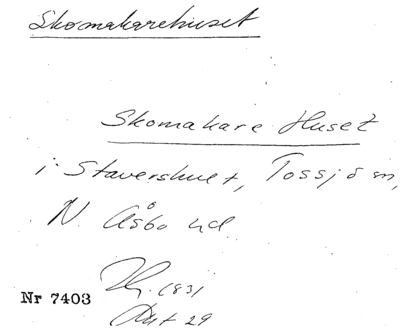 Skomakarehuset
Skomakare Huset
i Stavershult, Tossjö sn,
N. Åsbo hd
1831
Nr 7403
29